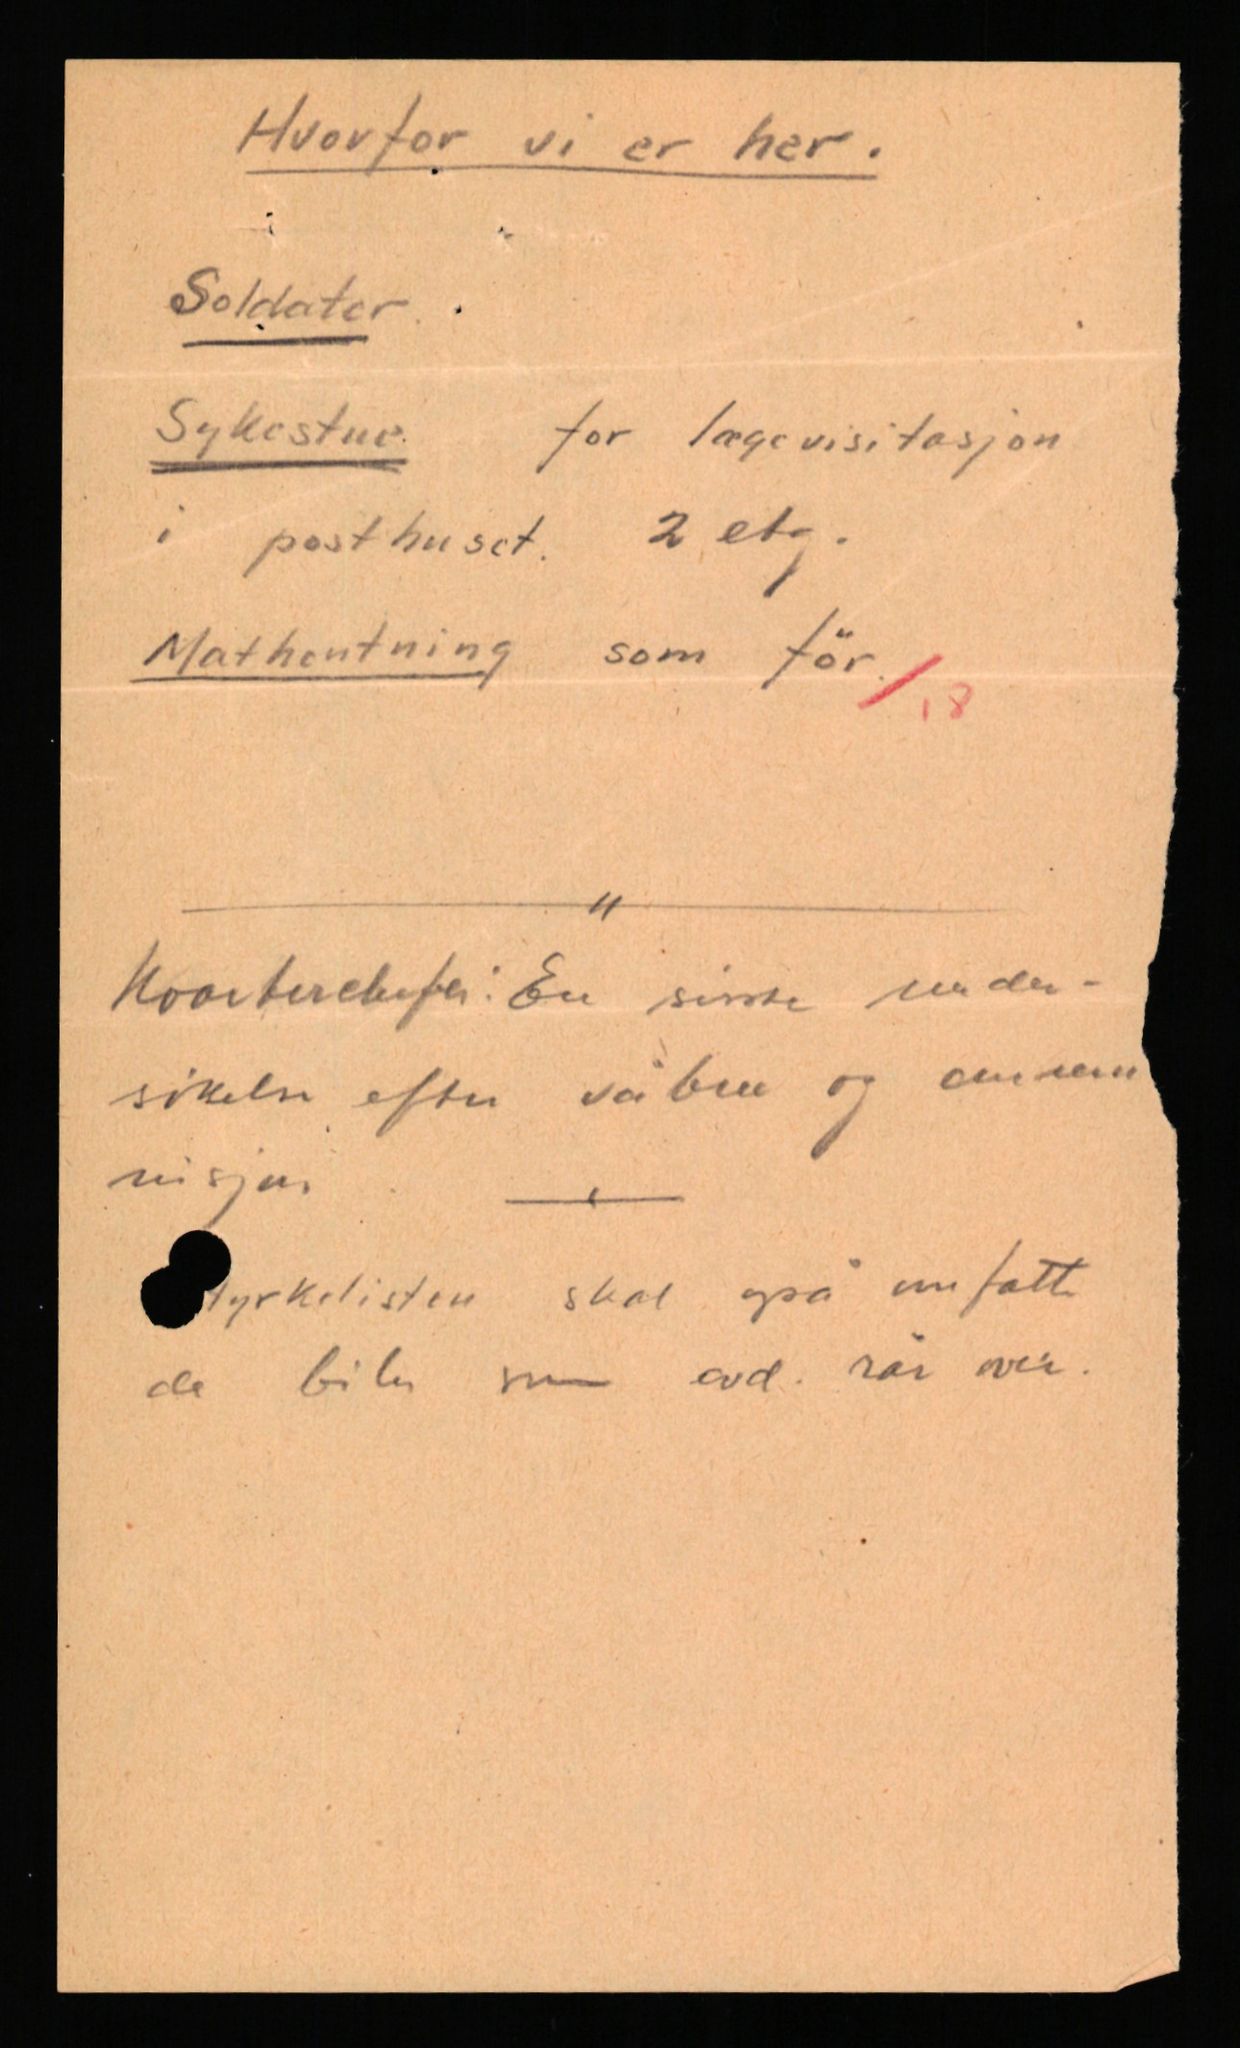 Hvorfor vi er her.
Soldater.
Sykestue for lægevisitasjon
i posthuset. 2 etg.
Mathentning som för.
18
Kvarterchefer: En siste under-
søkelse efter våben og ammu
nisjon
tyrkelisten skal også omfatte
de biler som avd. rår over.